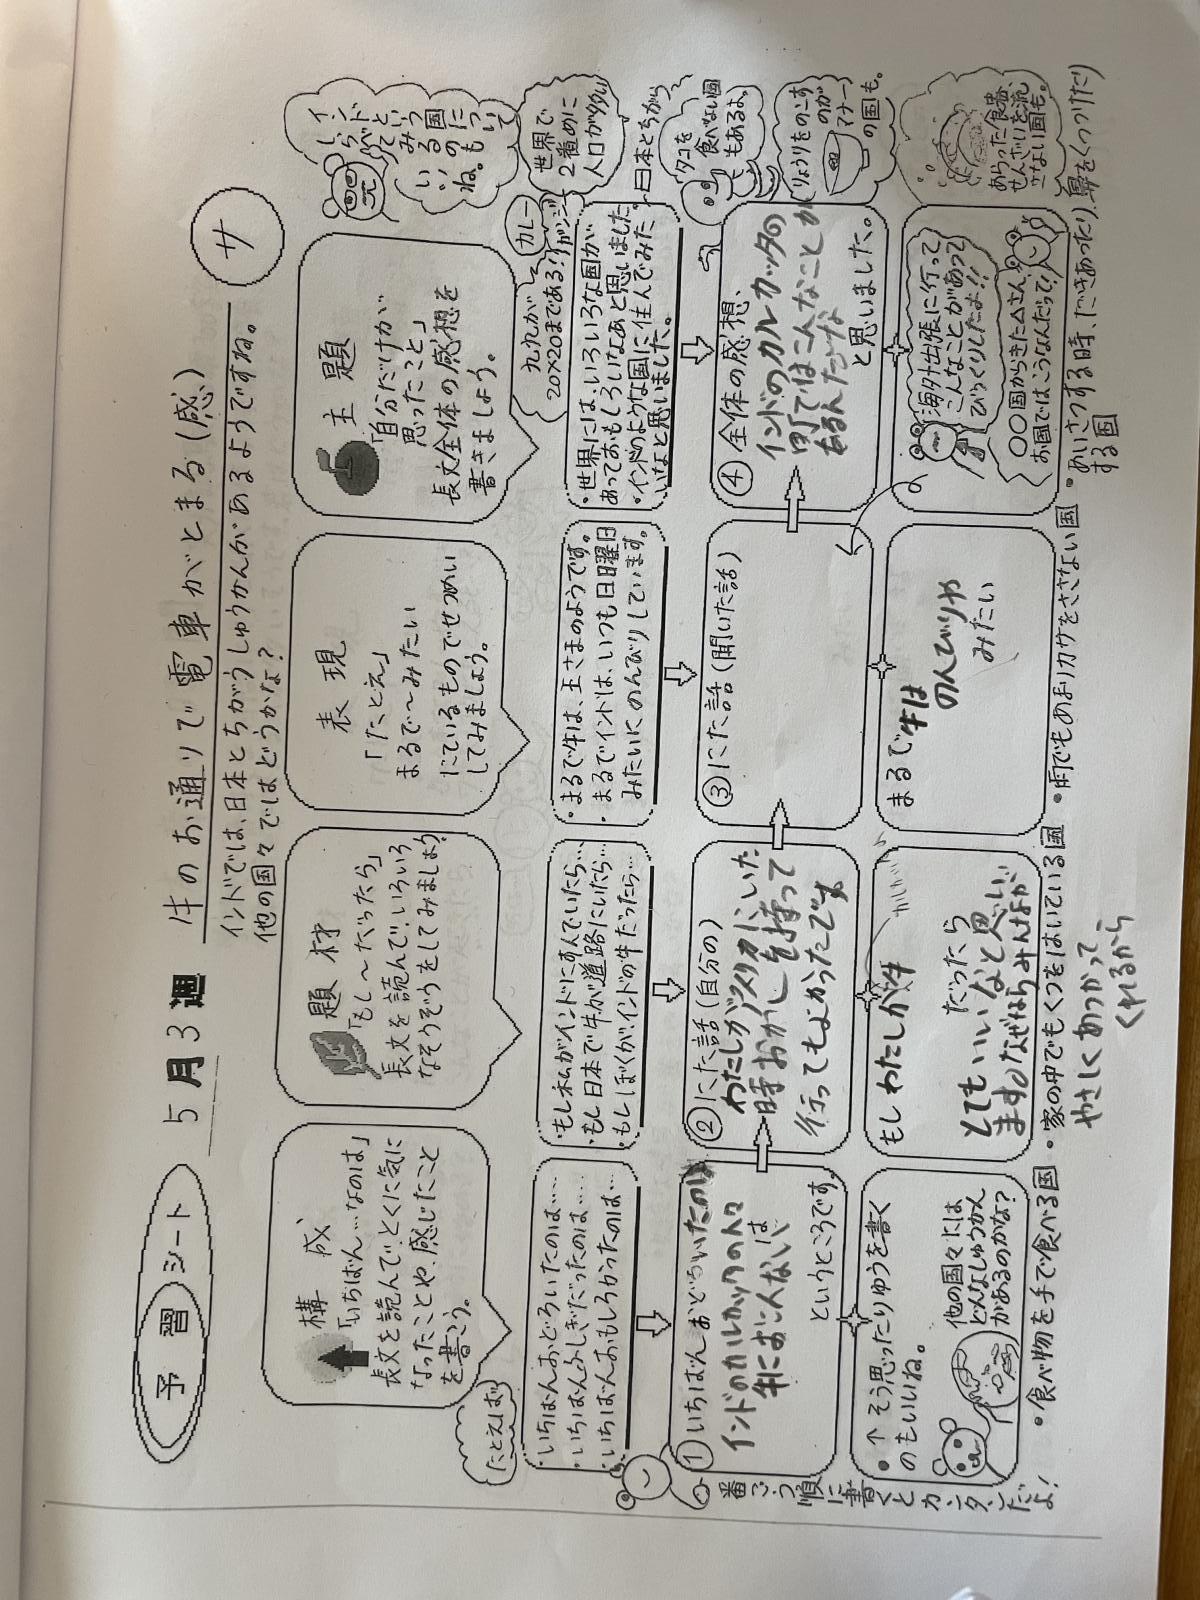 予習シート
5月3週
牛のお通りで電車がとまる(感)
サ
インドでは、日本とちがうしゅうかんがあるようですね。
他の国々ではどうかな?
構成
「いちばん…なのは」
長文を読んで、とくに気に
なったことや、感じたこと
を書こう。
題材
「もし〜だったら」
長文を読んで、いろいろ
なそうぞうをしてみましょう
表現
「たとえ」
まるで〜みたい
にているものでせつめい
してみましょう。
主題
「自分だけが
思ったこと」
長文全体の感想を
書きましょう。
インドという国についてもしらべてみるのもいいね。
世界で
2番めに
人口が多い
カレー
ガンジー
九九が
20×20まである!
たとえば
・いちばんおどろいたのは…
・いちばんふしぎだったのは…
・いちばんおもしろかったのは…
・もし私がインドにすんでいたら…
・もし日本で牛が道路にいたら…
・もしぼくがインドの牛だったら…
・まるで牛は、王さまのようです。
・まるでインドは、いつも日曜日
みたいにのんびりしています。
・世界には、いろいろな国が
あっておもしろいなあと思いました。
・インドのような国に住んでみた
いなと思いました。
日本とちがう
タコを
食べない国
もあるよ。
りょうりをのこす
のが
マナー
の国も。
あらった食器、
せんざいを流
さない国も。
①いちばんおどろいたのは
インドのカルカッタの人々
は
牛におに人ないい
というところです。
②にた話(自分の)
わたしがアスタカにいた
時おかしを持って
行ってもよかったです
③にた話(聞いた話)
④全体の感想、
インドのカルカッタの
町ではこんなことが
あるんだな
と思いました。
・↑そう思ったりゆうを書く
のもいいね。
他の国々には
どんなしゅうかん
があるのかな?
もしわたしが牛
だったら
とてもいいなと思い
ます。なぜならみんなが
やさしくあつかって
くれるから
まるで牛は
のんびりや
みたい
海外出張に行って
こんなことがあって
びっくりしたよ!!
〇〇国からきたムさん、
お国ではこうなんだって!
・食べ物を手で食べる国
・家の中でもくつをはいている国
・雨でもあまりカサをささない国
・あいさつする時、だきあったり、鼻をくっつけたり
する国
番ごう順に書くとカンタンだよ!